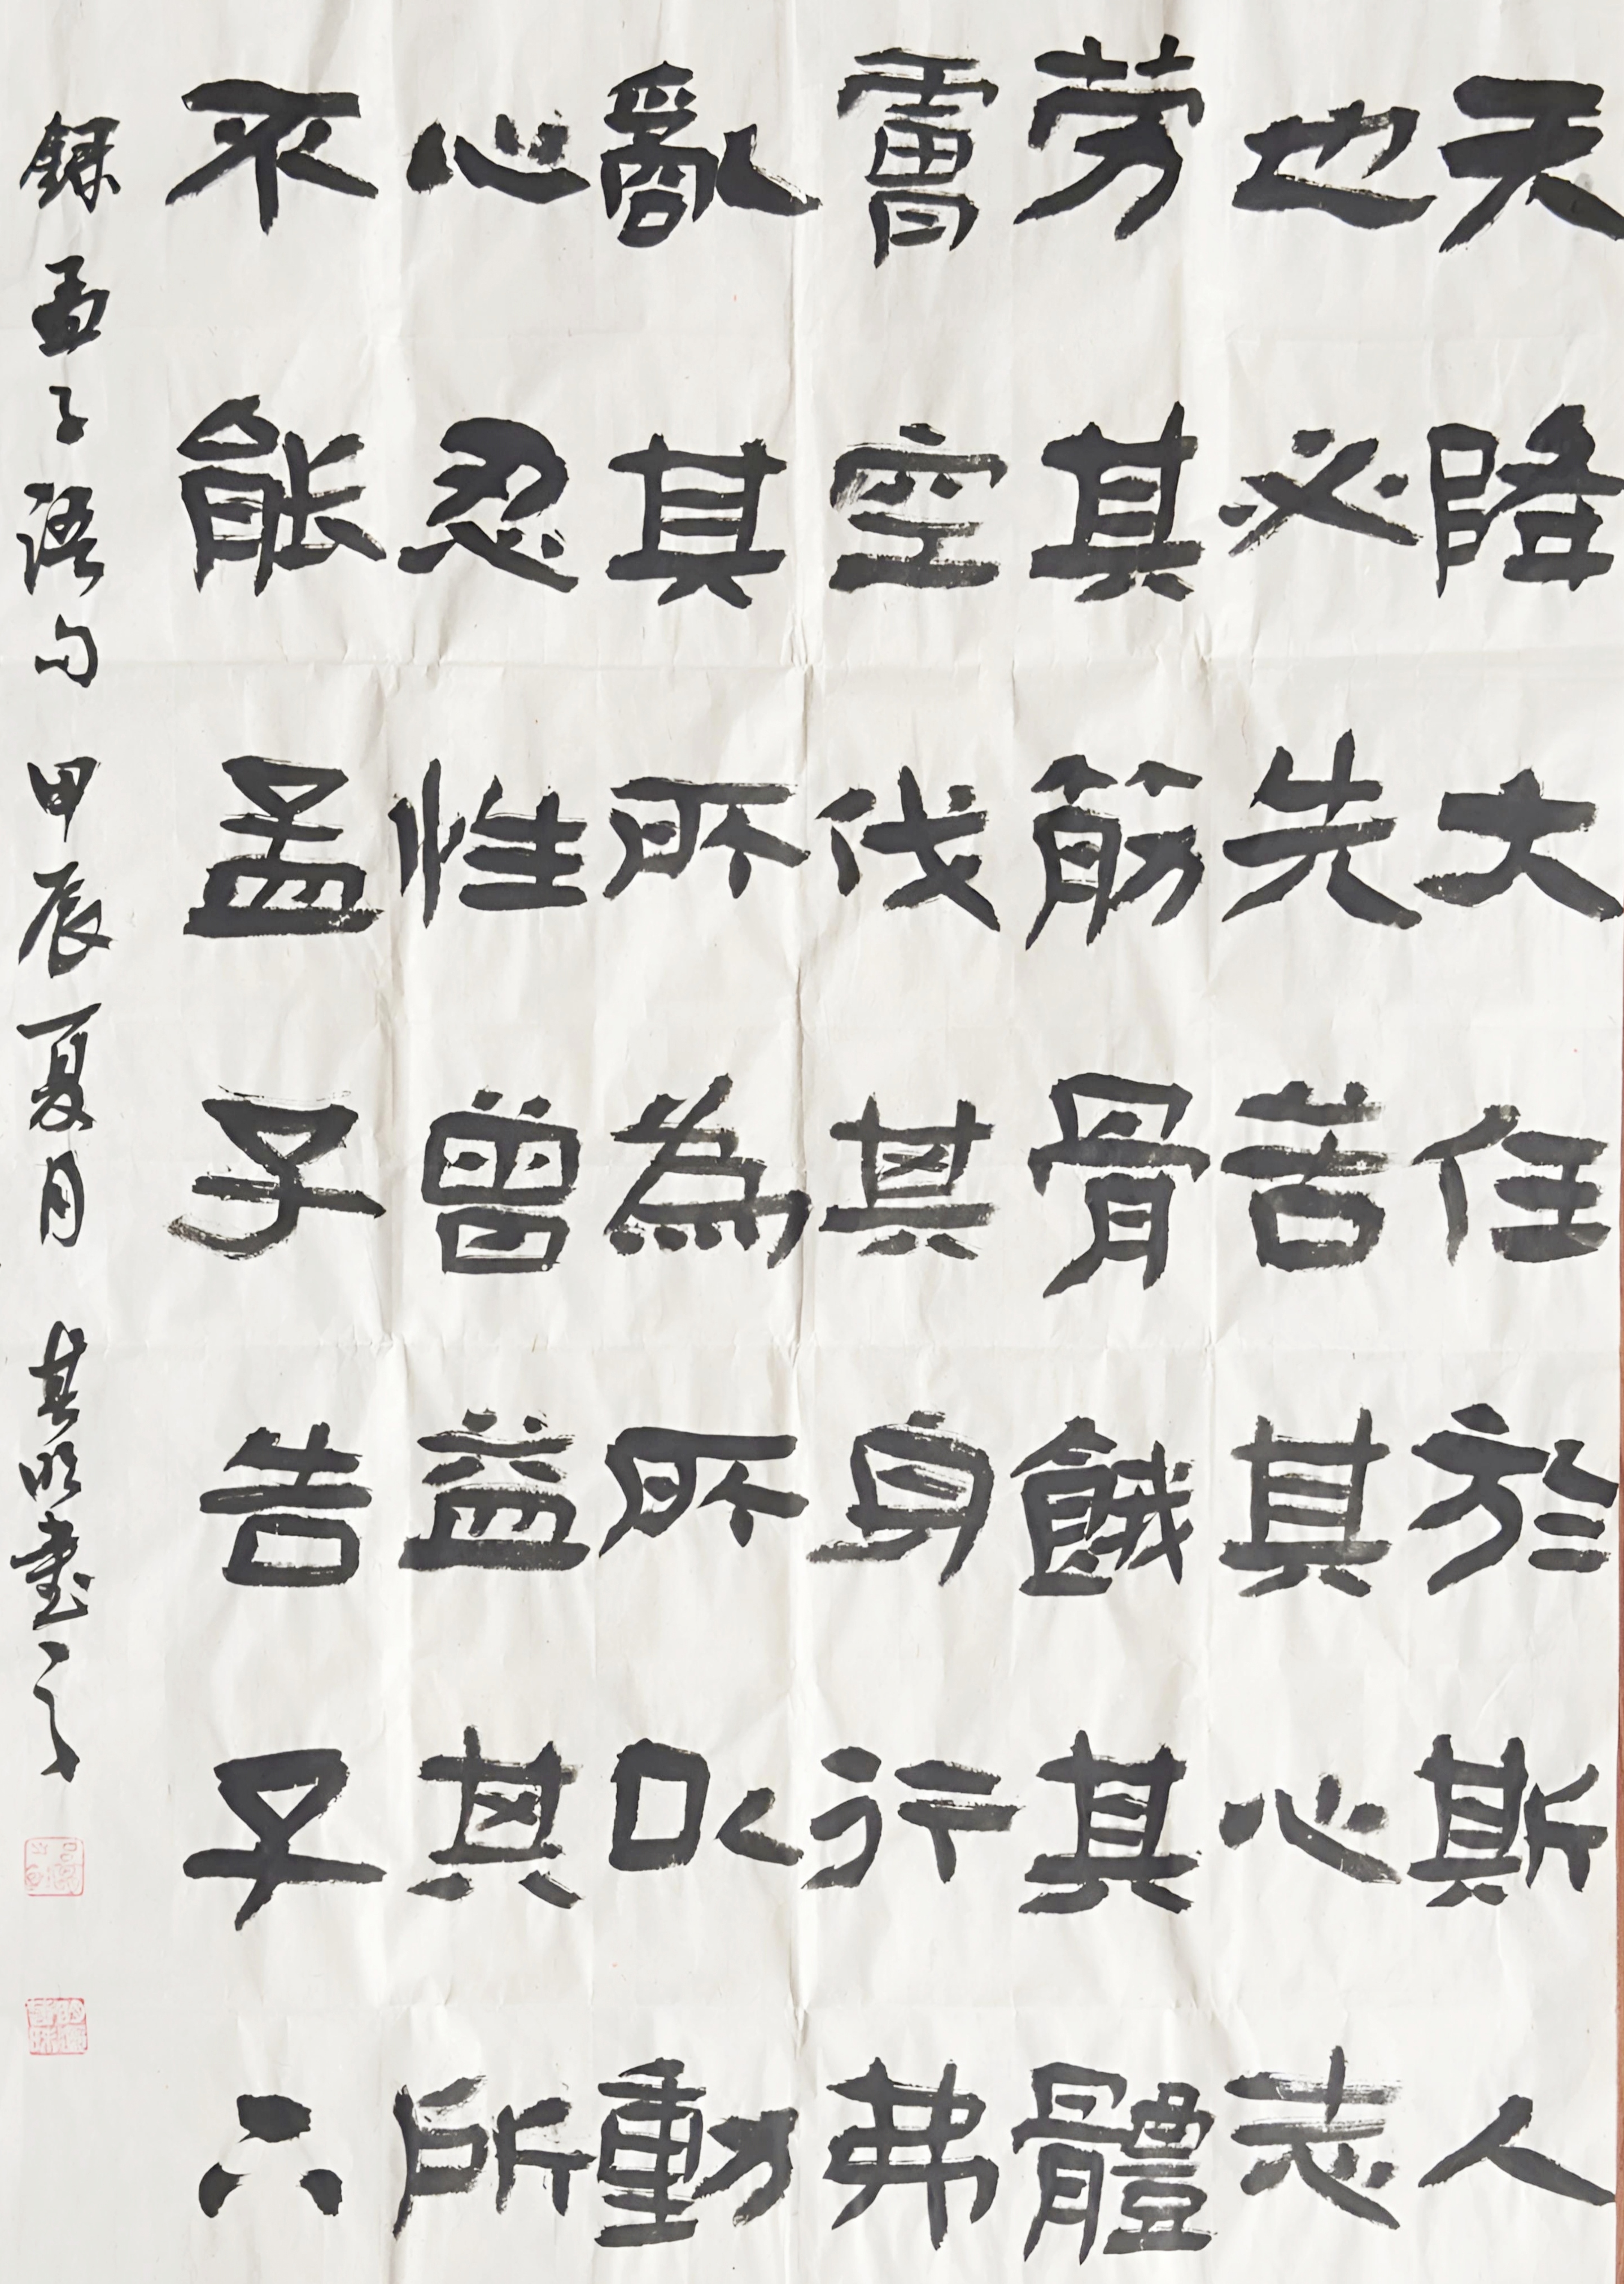 天降大任於斯人
也必先苦其心志
劳其筋骨餓其體
膚空伐其身行弗
亂其所為所以動
心忍性曾益其所
不能孟子告子六
録孟子語句 甲辰夏月 其明書之